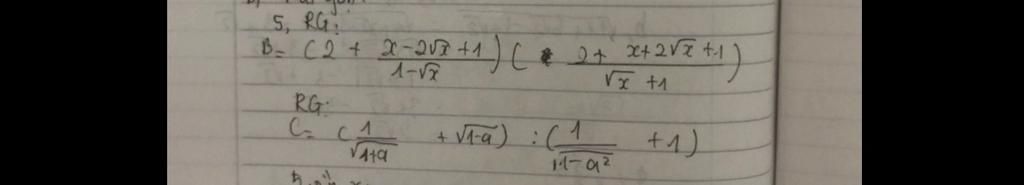 5, RG:
B = (2 + \frac{x-2\sqrt{x}+1}{1-\sqrt{x}}) (2 + \frac{x+2\sqrt{x}+1}{\sqrt{x}+1})
RG:
C = (\frac{1}{\sqrt{1+a}} + \sqrt{1-a}) : (\frac{1}{\sqrt{1-a^2}} + 1)